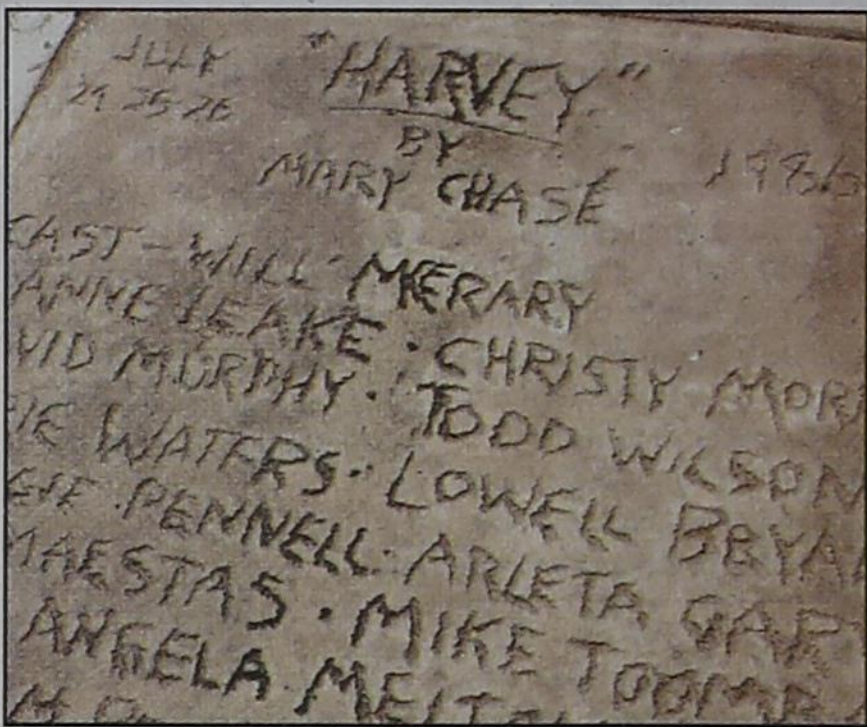 JULY
24 25 26
"HARVEY"
BY
MARY CHASE
CAST - WILL MCERARY
ANNE LEAKE · CHRISTY MOR
VID MURPHY · TODD WILSON
IE WATERS · LOWELL BRYA
PENNELL · ARLETA GAR
MAESTAS · MIKE TOOMB
ANGELA MELT